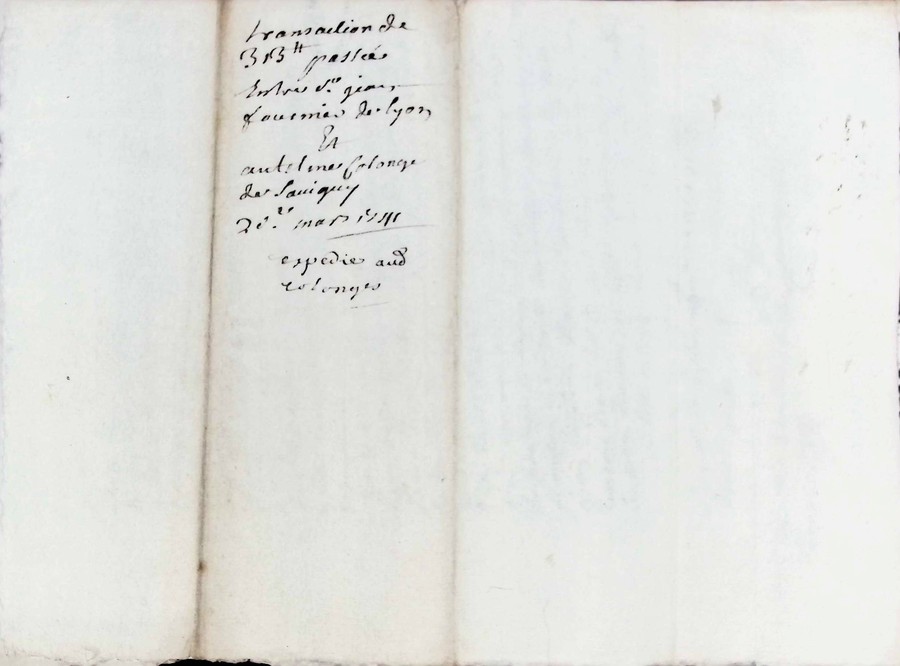 transaction de
313 ₶ passée
Entre Sr jean
fournier de Lyon
Et
anthoine Colonge
de Savigny
mars 1741
expedié aud
Colonges